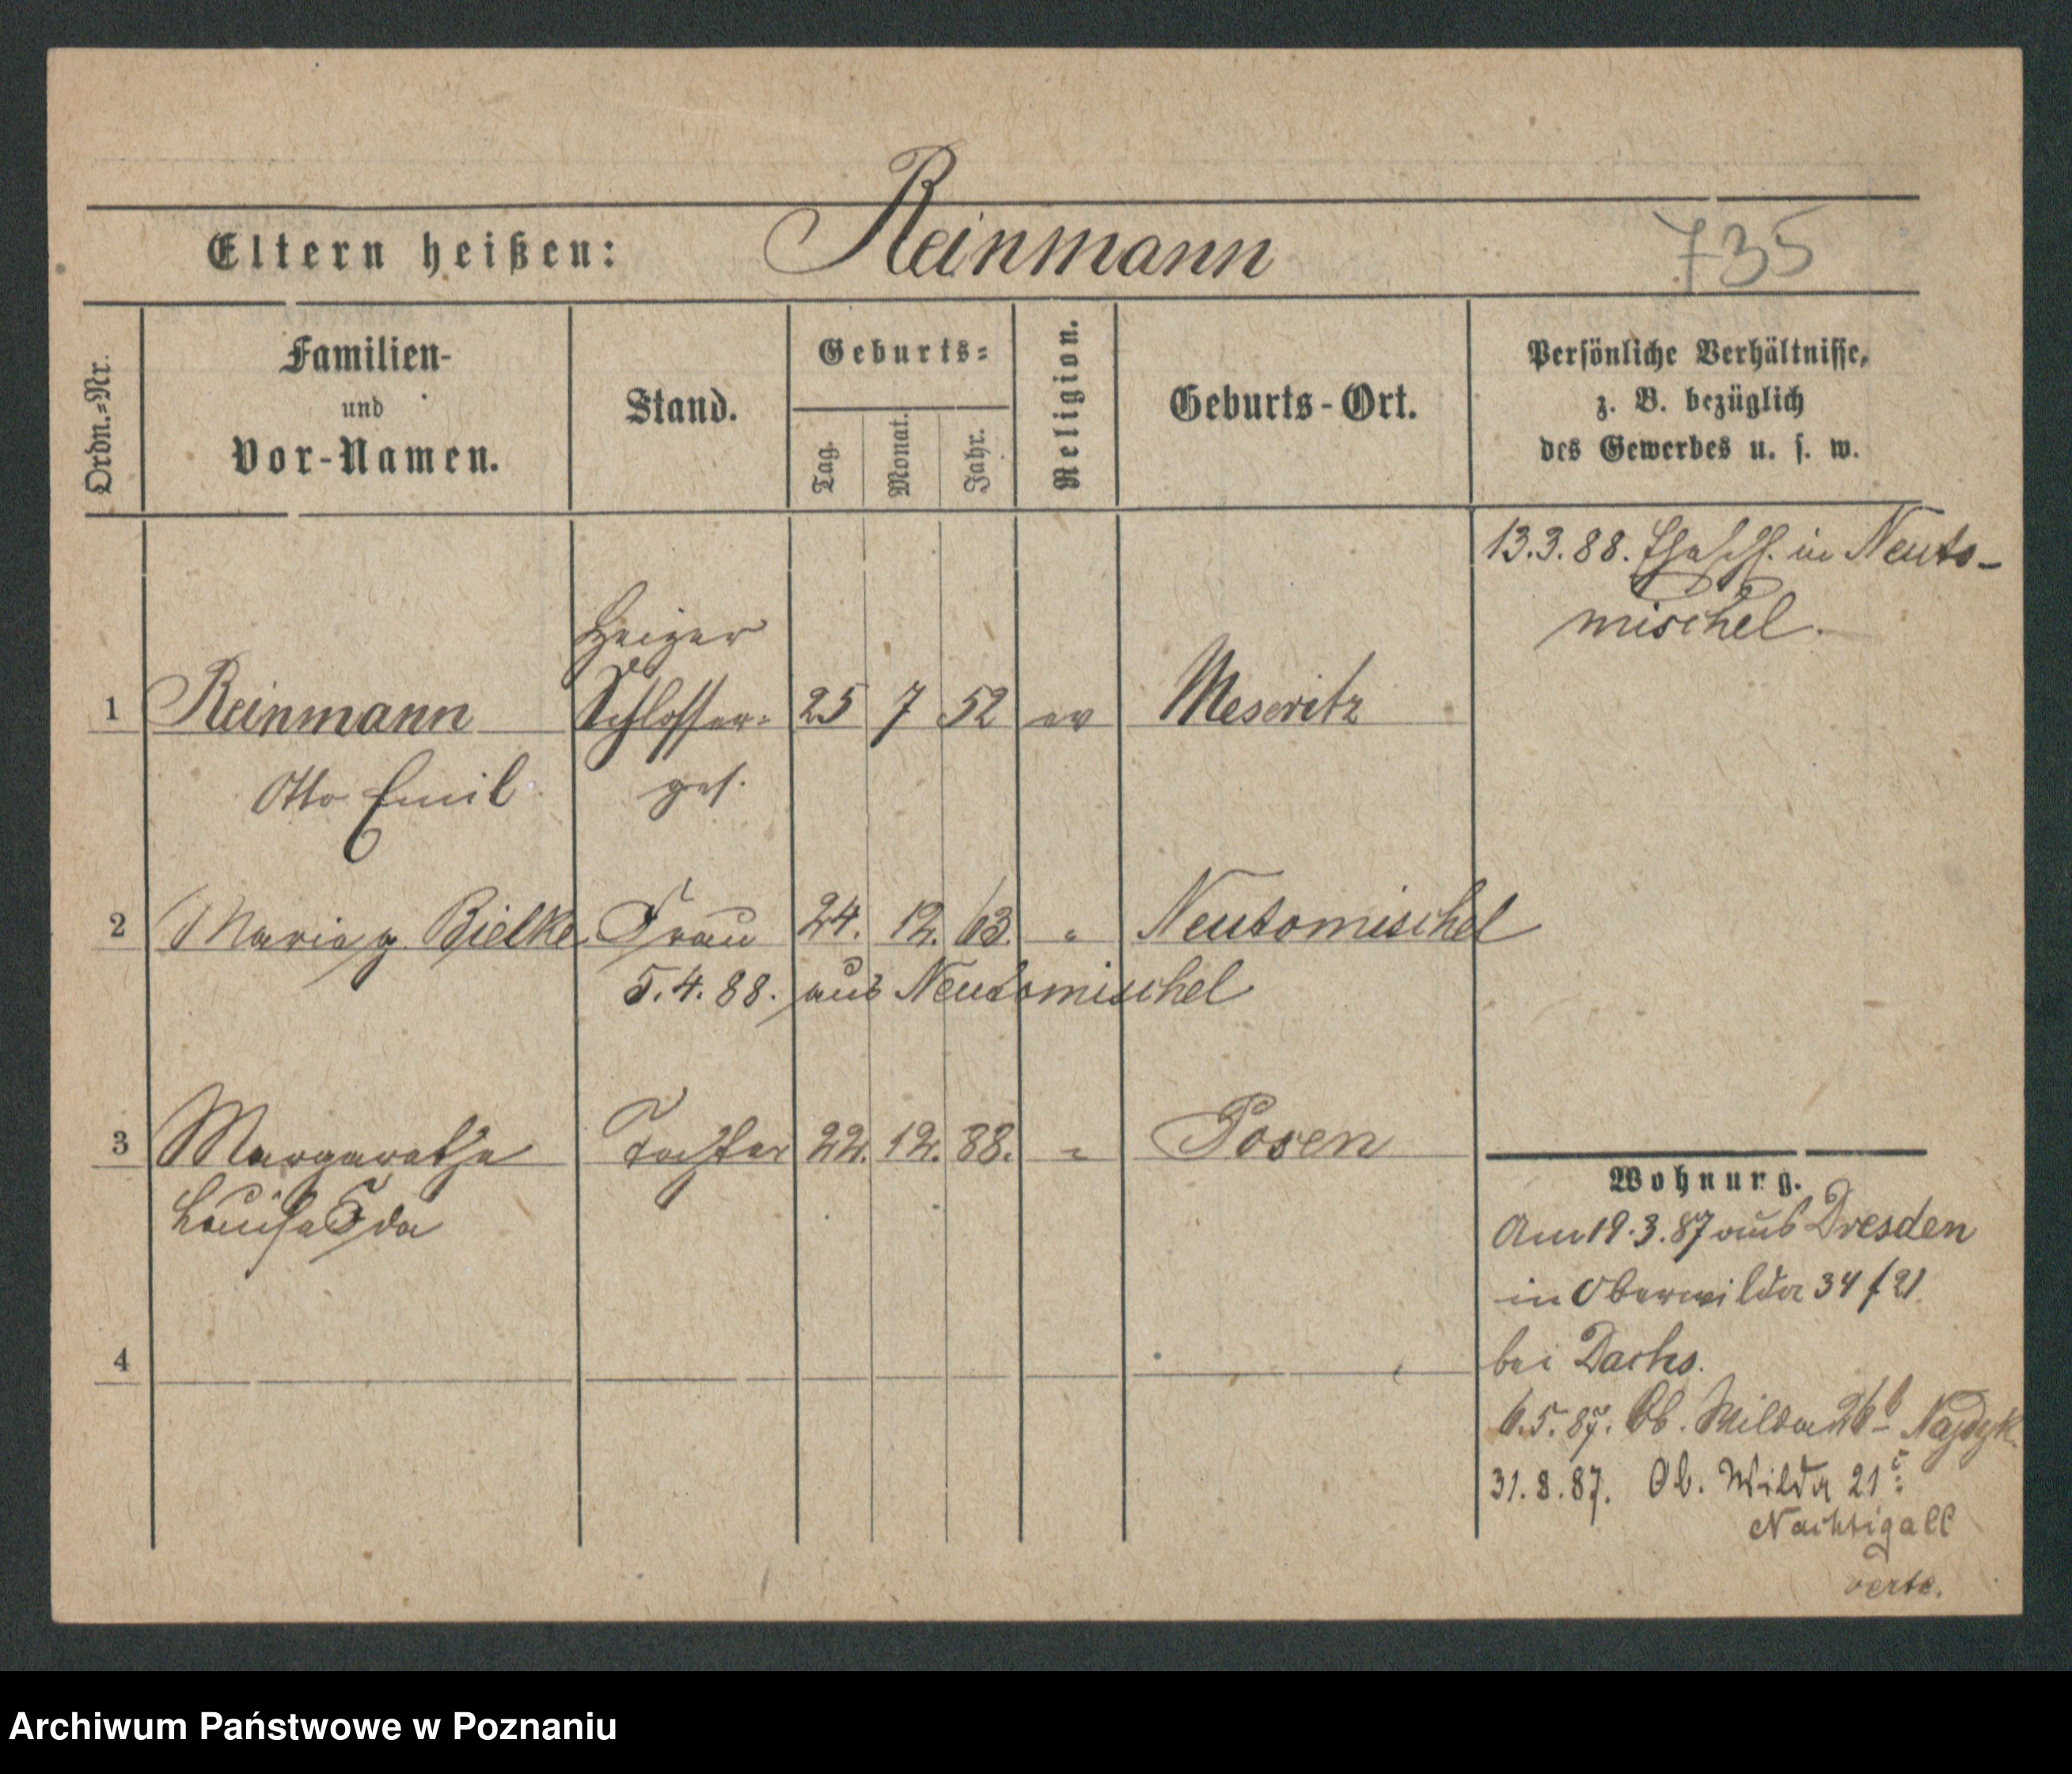 Eltern heißen: Reinmann 735
Ordn.=Nr.
Familien-
und
Vor-Namen.
Stand.
Geburts=
Tag. Monat. Jahr.
Religion.
Geburts-Ort.
Persönliche Verhältnisse,
z. B. bezüglich
des Gewerbes u. s. w.
13.3.88. in Neuto-
mischel.
Heizer
1 Reinmann Schlosser= 25 7 52 ev Meseritz
Otto Emil ges.
2 Maria g. Bielke Frau 24. 12. 63. " Neutomischel
5.4.88. aus Neutomischel
3 Margarethe Tochter 22. 12. 88. " Posen
Louise Ida
4
Wohnung.
Am 19.3.87 aus Dresden
in Oberwilda 34/21.
bei Dachs.
6.5.87. Ob. Wilda 26b Najdyk
31.8.87. Ob. Wilda 21
Nachtigall
verte.
Archiwum Państwowe w Poznaniu